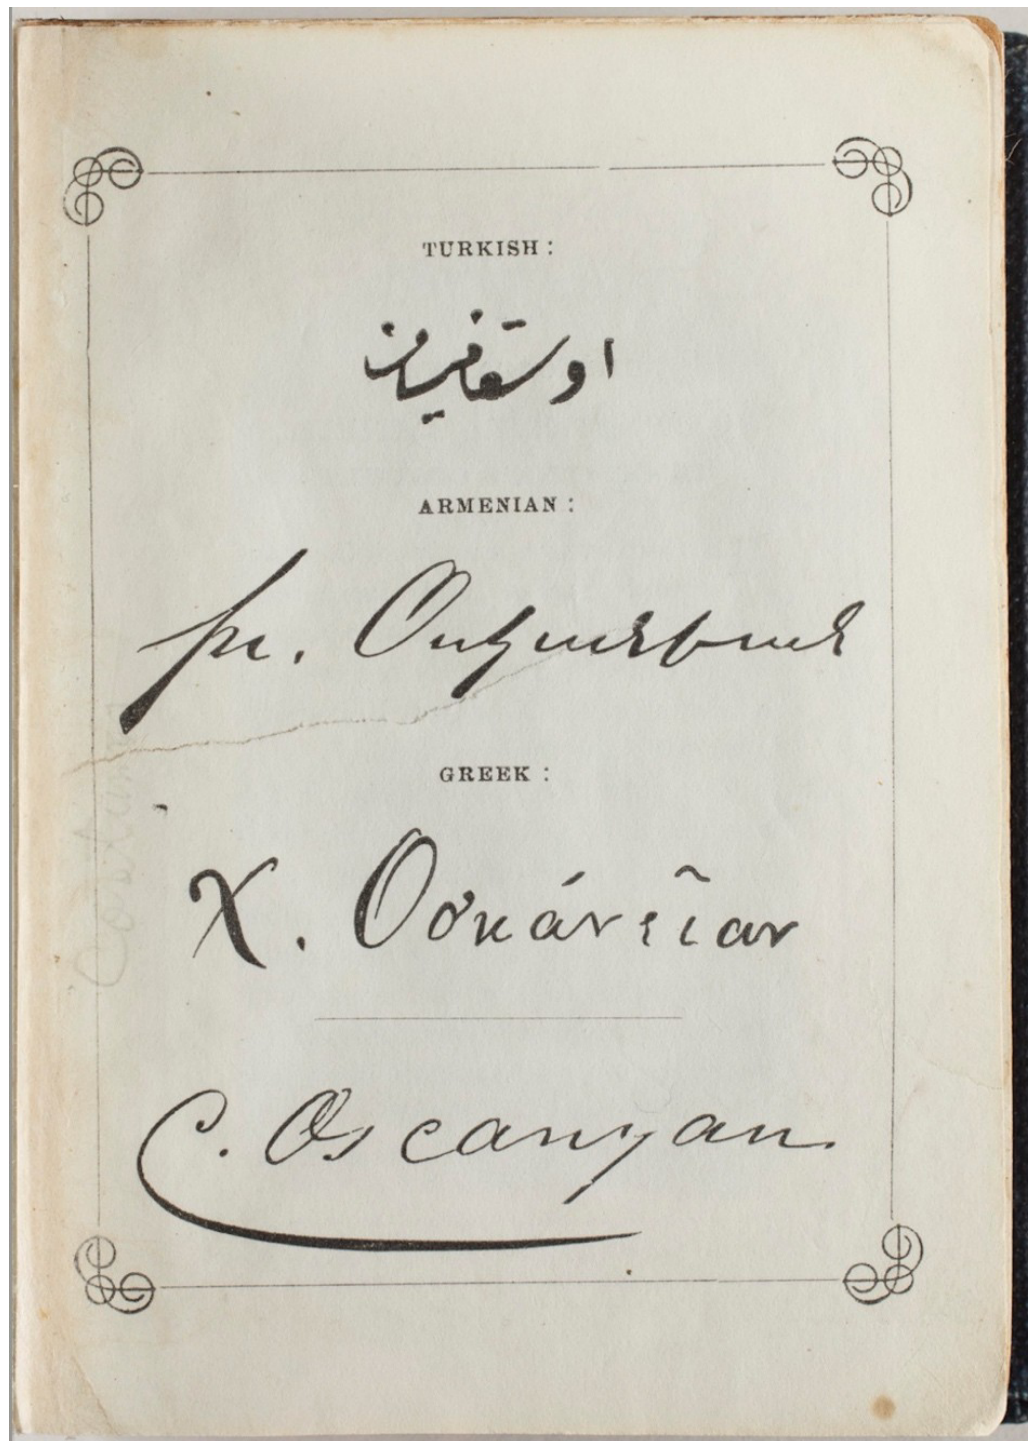 TURKISH :
اوسقانيان
ARMENIAN :
խ. Ոսկանեան
GREEK :
Χ. Οσκάνεῖαν
C. Oscanyan